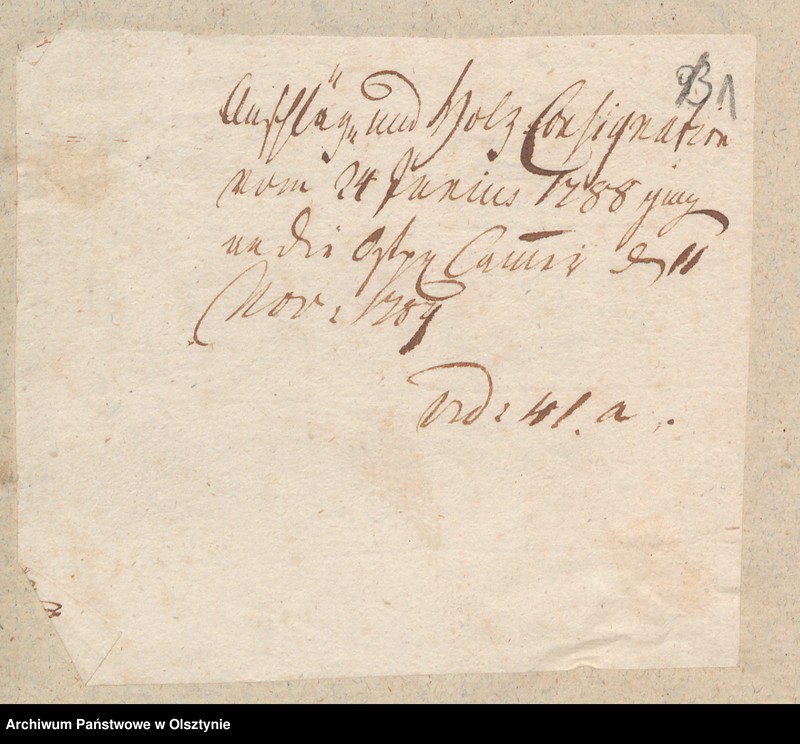 93 1
Anschläg, und Holz Consignation
vom 24 Junius 1788 ging
an die Ostpr Cam̄er d 11
Nov: 1789
vid: 41. a.
Archiwum Państwowe w Olsztynie